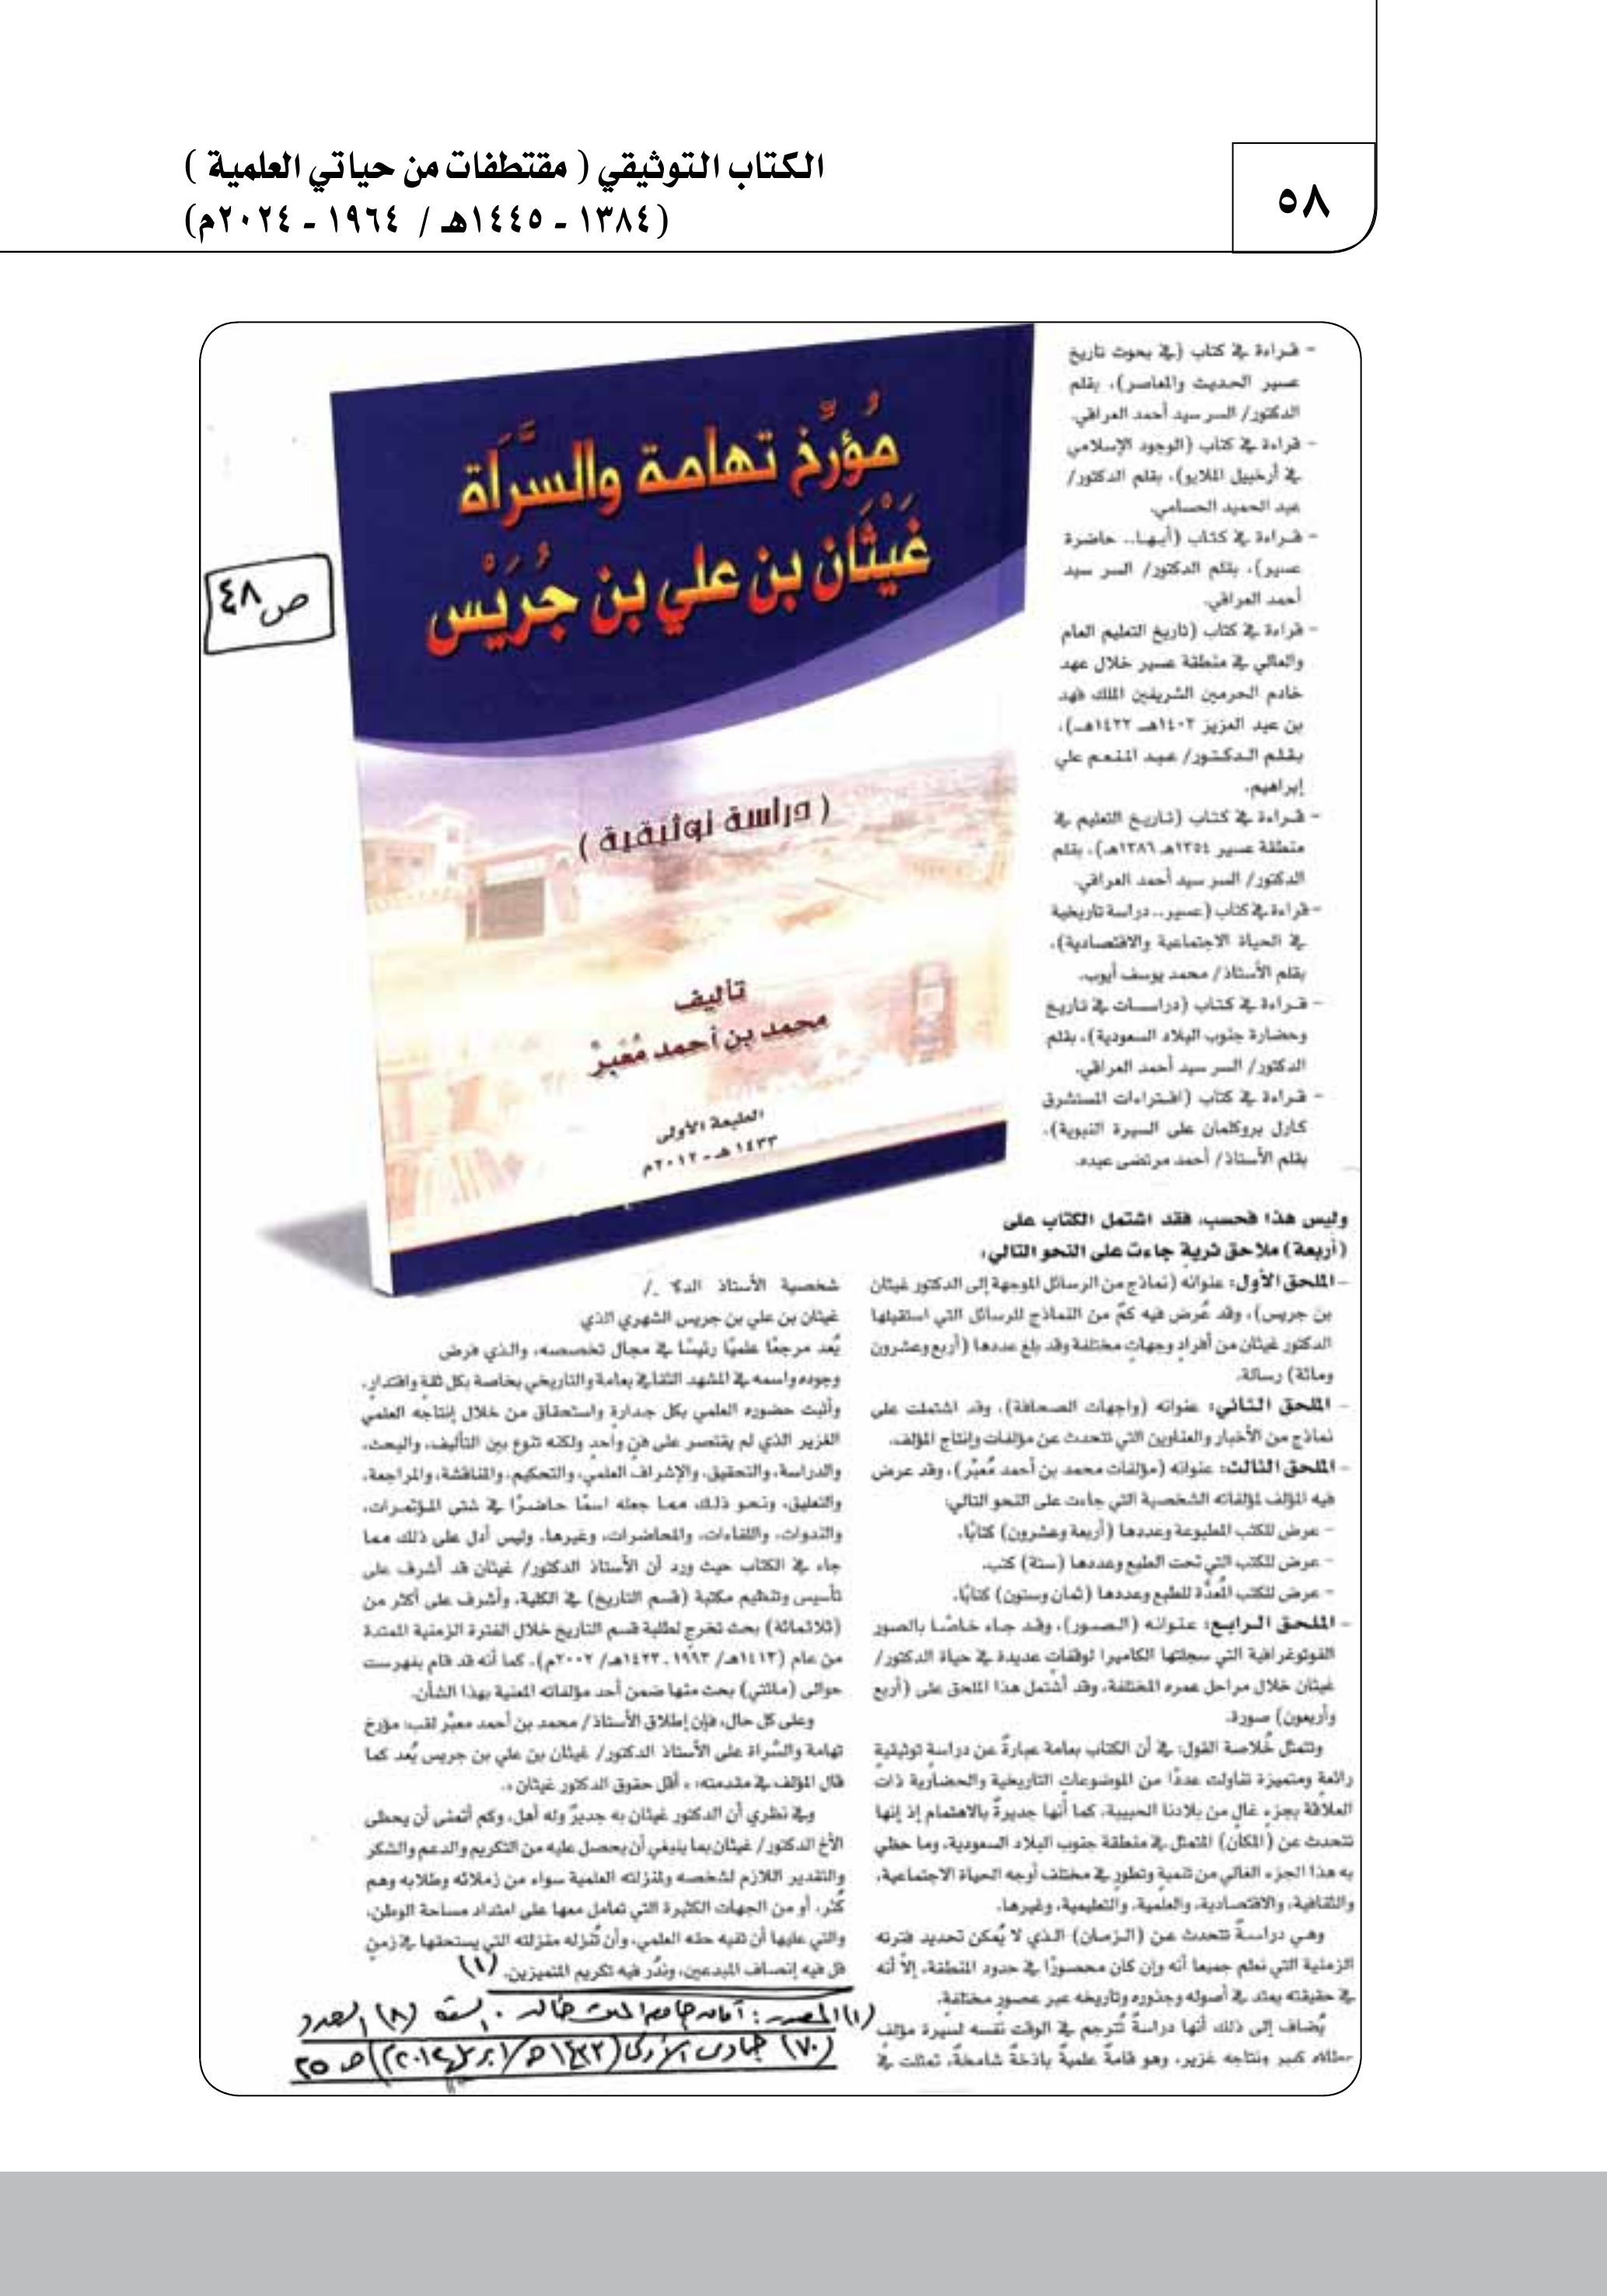 ٥٨
الكتاب التوثيقي ( مقتطفات من حياتي العلمية )
(١٣٨٤ - ١٤٤٥هـ / ١٩٦٤ - ٢٠٢٤م)
- قراءة في كتاب (في بحوث تاريخ
عسير الحديث والمعاصر)، بقلم
الدكتور/ السر سيد أحمد العراقي.
- قراءة في كتاب (الوجود الإسلامي
في أرخبيل الملايو)، بقلم الدكتور/
عبد الحميد الحسامي.
- قراءة في كتاب (أبها.. حاضرة
عسير)، بقلم الدكتور/ السر سيد
أحمد العراقي.
- قراءة في كتاب (تاريخ التعليم العام
والعالي في منطقة عسير خلال عهد
خادم الحرمين الشريفين الملك فهد
بن عبد العزيز ١٤٠٢هـ ١٤٢٢هـ)،
بقلم الدكتور/ عبد المنعم علي
إبراهيم.
- قراءة في كتاب (تاريخ التعليم في
منطقة عسير ١٣٥٤هـ ١٣٨٦هـ)، بقلم
الدكتور/ السر سيد أحمد العراقي.
- قراءة في كتاب (عسير.. دراسة تاريخية
في الحياة الاجتماعية والاقتصادية)،
بقلم الأستاذ/ محمد يوسف أيوب.
- قراءة في كتاب (دراسات في تاريخ
وحضارة جنوب البلاد السعودية)، بقلم
الدكتور/ السر سيد أحمد العراقي.
- قراءة في كتاب (افتراءات المستشرق
كارل بروكلمان على السيرة النبوية)،
بقلم الأستاذ/ أحمد مرتضى عبده.
مُؤرِّخ تهامة والسَّرَاة
غَيْثَان بن علي بن جُرَيْس
( دراسة توثيقية )
تأليف
محمد بن أحمد مُعَبرْ
الطبعة الأولى
١٤٣٣هـ - ٢٠١٢م
ص٤٨
وليس هذا فحسب، فقد اشتمل الكتاب على
(أربعة) ملاحق ثرية جاءت على النحو التالي:
- الملحق الأول: عنوانه (نماذج من الرسائل الموجهة إلى الدكتور غيثان
بن جريس)، وقد عُرض فيه كمٌ من النماذج للرسائل التي استقبلها
الدكتور غيثان من أفرادٍ وجهاتٍ مختلفة وقد بلغ عددها (أربع وعشرون
ومائة) رسالة.
- الملحق الثاني: عنوانه (واجهات الصحافة)، وقد اشتملت على
نماذج من الأخبار والعناوين التي تتحدث عن مؤلفات وإنتاج المؤلف.
- الملحق الثالث: عنوانه (مؤلفات محمد بن أحمد مُعبِّر)، وقد عرض
فيه المؤلف لمؤلفاته الشخصية التي جاءت على النحو التالي:
- عرض للكتب المطبوعة وعددها (أربعة وعشرون) كتابًا.
- عرض للكتب التي تحت الطبع وعددها (ستة) كتب.
- عرض للكتب المُعدَّة للطبع وعددها (ثمان وستون) كتابًا.
- الملحق الرابع: عنوانه (الصور)، وقد جاء خاصًا بالصور
الفوتوغرافية التي سجلتها الكاميرا لوقفاتٍ عديدة في حياة الدكتور/
غيثان خلال مراحل عمره المختلفة، وقد أشتمل هذا الملحق على (أربع
وأربعون) صورة.
وتتمثل خُلاصة القول: في أن الكتاب بعامة عبارةٌ عن دراسةٍ توثيقيةٍ
رائعة ومتميزة تناولت عددًا من الموضوعات التاريخية والحضارية ذات
العلاقة بجزءٍ غالٍ من بلادنا الحبيبة، كما أنها جديرةٌ بالاهتمام إذ إنها
تتحدث عن (المكان) المتمثل في منطقة جنوب البلاد السعودية، وما حظي
به هذا الجزء الغالي من تنميةٍ وتطورٍ في مختلف أوجه الحياة الاجتماعية،
والثقافية، والاقتصادية، والعلمية، والتعليمية، وغيرها.
وهي دراسةٌ تتحدث عن (الزمان) الذي لا يُمكن تحديد فترته
الزمنية التي نعلم جميعا أنه وإن كان محصورًا في حدود المنطقة، إلاّ أنه
في حقيقته يمتد في أصوله وجذوره وتاريخه عبر عصورٍ مختلفة.
يُضاف إلى ذلك أنها دراسةٌ تُترجم في الوقت نفسه لسيرة مؤلف
كبير ونتاجه غزير، وهو قامةٌ علميةٌ باذخةٌ شامخةٌ، تمثلت في
شخصية الأستاذ /
غيثان بن علي بن جريس الشهري الذي
يُعد مرجعًا علميًا رئيسًا في مجال تخصصه، والذي فرض
وجوده واسمه في المشهد الثقافي بعامة والتاريخي بخاصة بكل ثقةٍ واقتدارٍ،
وأثبت حضوره العلمي بكل جدارةٍ واستحقاق من خلال إنتاجه العلمي
الغزير الذي لم يقتصر على فنٍ واحدٍ ولكنه تنوع بين التأليف، والبحث،
والدراسة، والتحقيق، والإشراف العلمي، والتحكيم، والمناقشة، والمراجعة،
والتعليق، ونحو ذلك مما جعله اسمًا حاضرًا في شتى المؤتمرات،
والندوات، واللقاءات، والمحاضرات، وغيرها. وليس أدل على ذلك مما
جاء في الكتاب حيث ورد أن الأستاذ الدكتور/ غيثان قد أشرف على
تأسيس وتنظيم مكتبة (قسم التاريخ) في الكلية، وأشرف على أكثر من
(ثلاثمائة) بحث تخرجٍ لطلبة قسم التاريخ خلال الفترة الزمنية الممتدة
من عام (١٤١٣هـ/ ١٩٩٣ ـ ١٤٢٣هـ/ ٢٠٠٢م)، كما أنه قد قام بفهرست
حوالي (مائتي) بحث منها ضمن أحد مؤلفاته المعنية بهذا الشأن.
وعلى كل حال، فإن إطلاق الأستاذ/ محمد بن أحمد معبّر لقب: مؤرخ
تهامة والسَّراة على الأستاذ الدكتور/ غيثان بن علي بن جريس يُعد كما
قال المؤلف في مقدمته: « أقل حقوق الدكتور غيثان ».
وفي نظري أن الدكتور غيثان به جديرٌ وله أهل، وكم أتمنى أن يحظى
الأخ الدكتور/ غيثان بما ينبغي أن يحصل عليه من التكريم والدعم والشكر
والتقدير اللازم لشخصه ولمنزلته العلمية سواء من زملائه وطلابه وهم
كُثر، أو من الجهات الكثيرة التي تعامل معها على امتداد مساحة الوطن،
والتي عليها أن تفيه حقه العلمي، وأن تُنزله منزلته التي يستحقها في زمنٍ
قل فيه إنصاف المبدعين، وندُر فيه تكريم المتميزين. (١)
(١) المصدر: آفاق جامعة الملك خالد . السنة (٨) العدد
(٧٠) جمادى الأولى (١٤٣٣هـ/ ابريل ٢٠١٢م) ص ٢٥